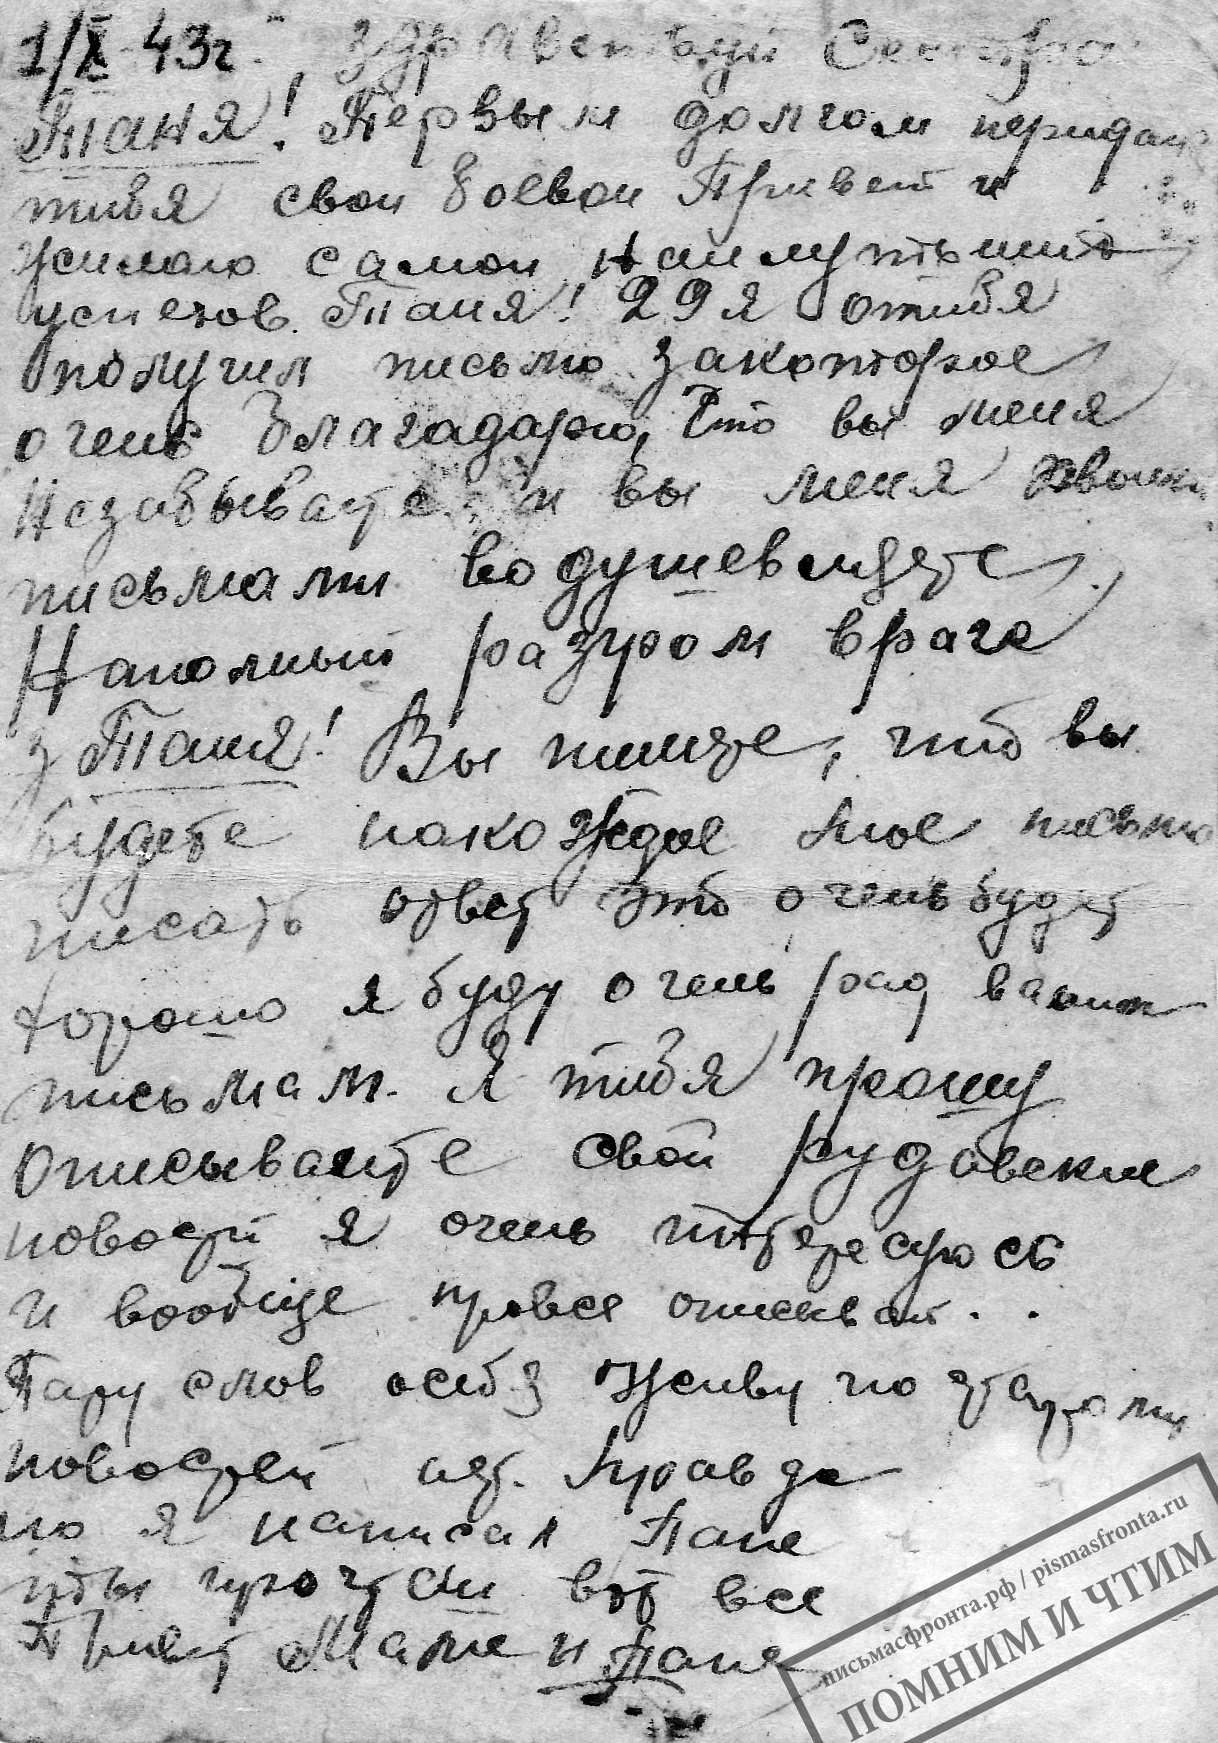 1/X 43г. Здравствуй Сестра
Таня! Первым долгом перидаю
тибя свой боевой Привет и
усилаю самои наилутьших
успехов. Таня! 29 я отибя
получил письмо закоторое
очень благадарю, Что вы меня
незабываете. и вы меня
письмами водушевляете
Наполный разгром врага
з Таня! Вы пишете, что вы
будете покаждое мое письмо
писать ответ это очень будет
хорошо я буду очень рад вашим
письмам. я тибя прошу
описывайте свои рудавские
новости я очень интересуюсь
и вообще провсе описывай..
Пару слов осебэ Живу по старому
новостей нет. Правда
что я написал Папе
ты прочтеш вот все
Привет Маме и Папе
письмасфронта.рф / pismasfronta.ru
ПОМНИМ И ЧТИМ